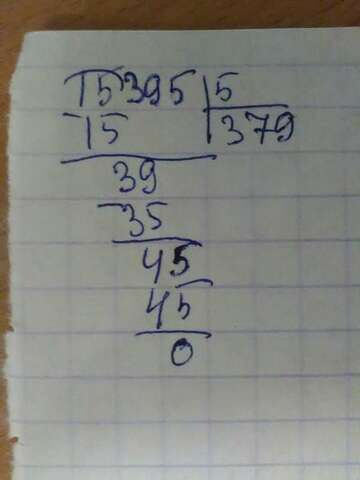 15395 5
15 379
39
35
45
45
0